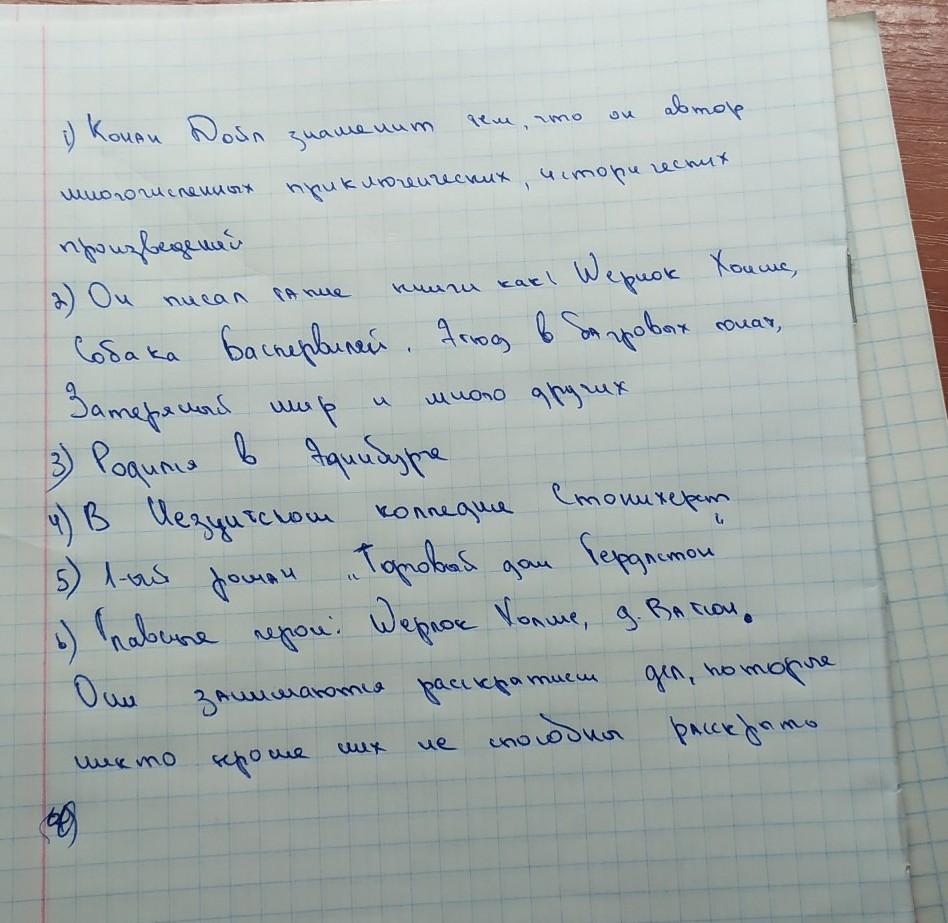 1) Конан Дойл знаменит тем, что он автор
многочисленных приключенческих, исторических
произведений
2) Он писал такие книги как: Шерлок Холмс,
Собака Баскервилей, Этюд в багровых тонах,
Затеряный мир и много других
3) Родился в Эдинбурге
4) В Иезуитском колледже Стонихерст
5) 1-ый роман „Торговый дом Гердлстон"
6) Главные герои: Шерлок Холмс, д. Ватсон.
Они занимаются раскрытием дел, которые
никто кроме них не способны раскрыть